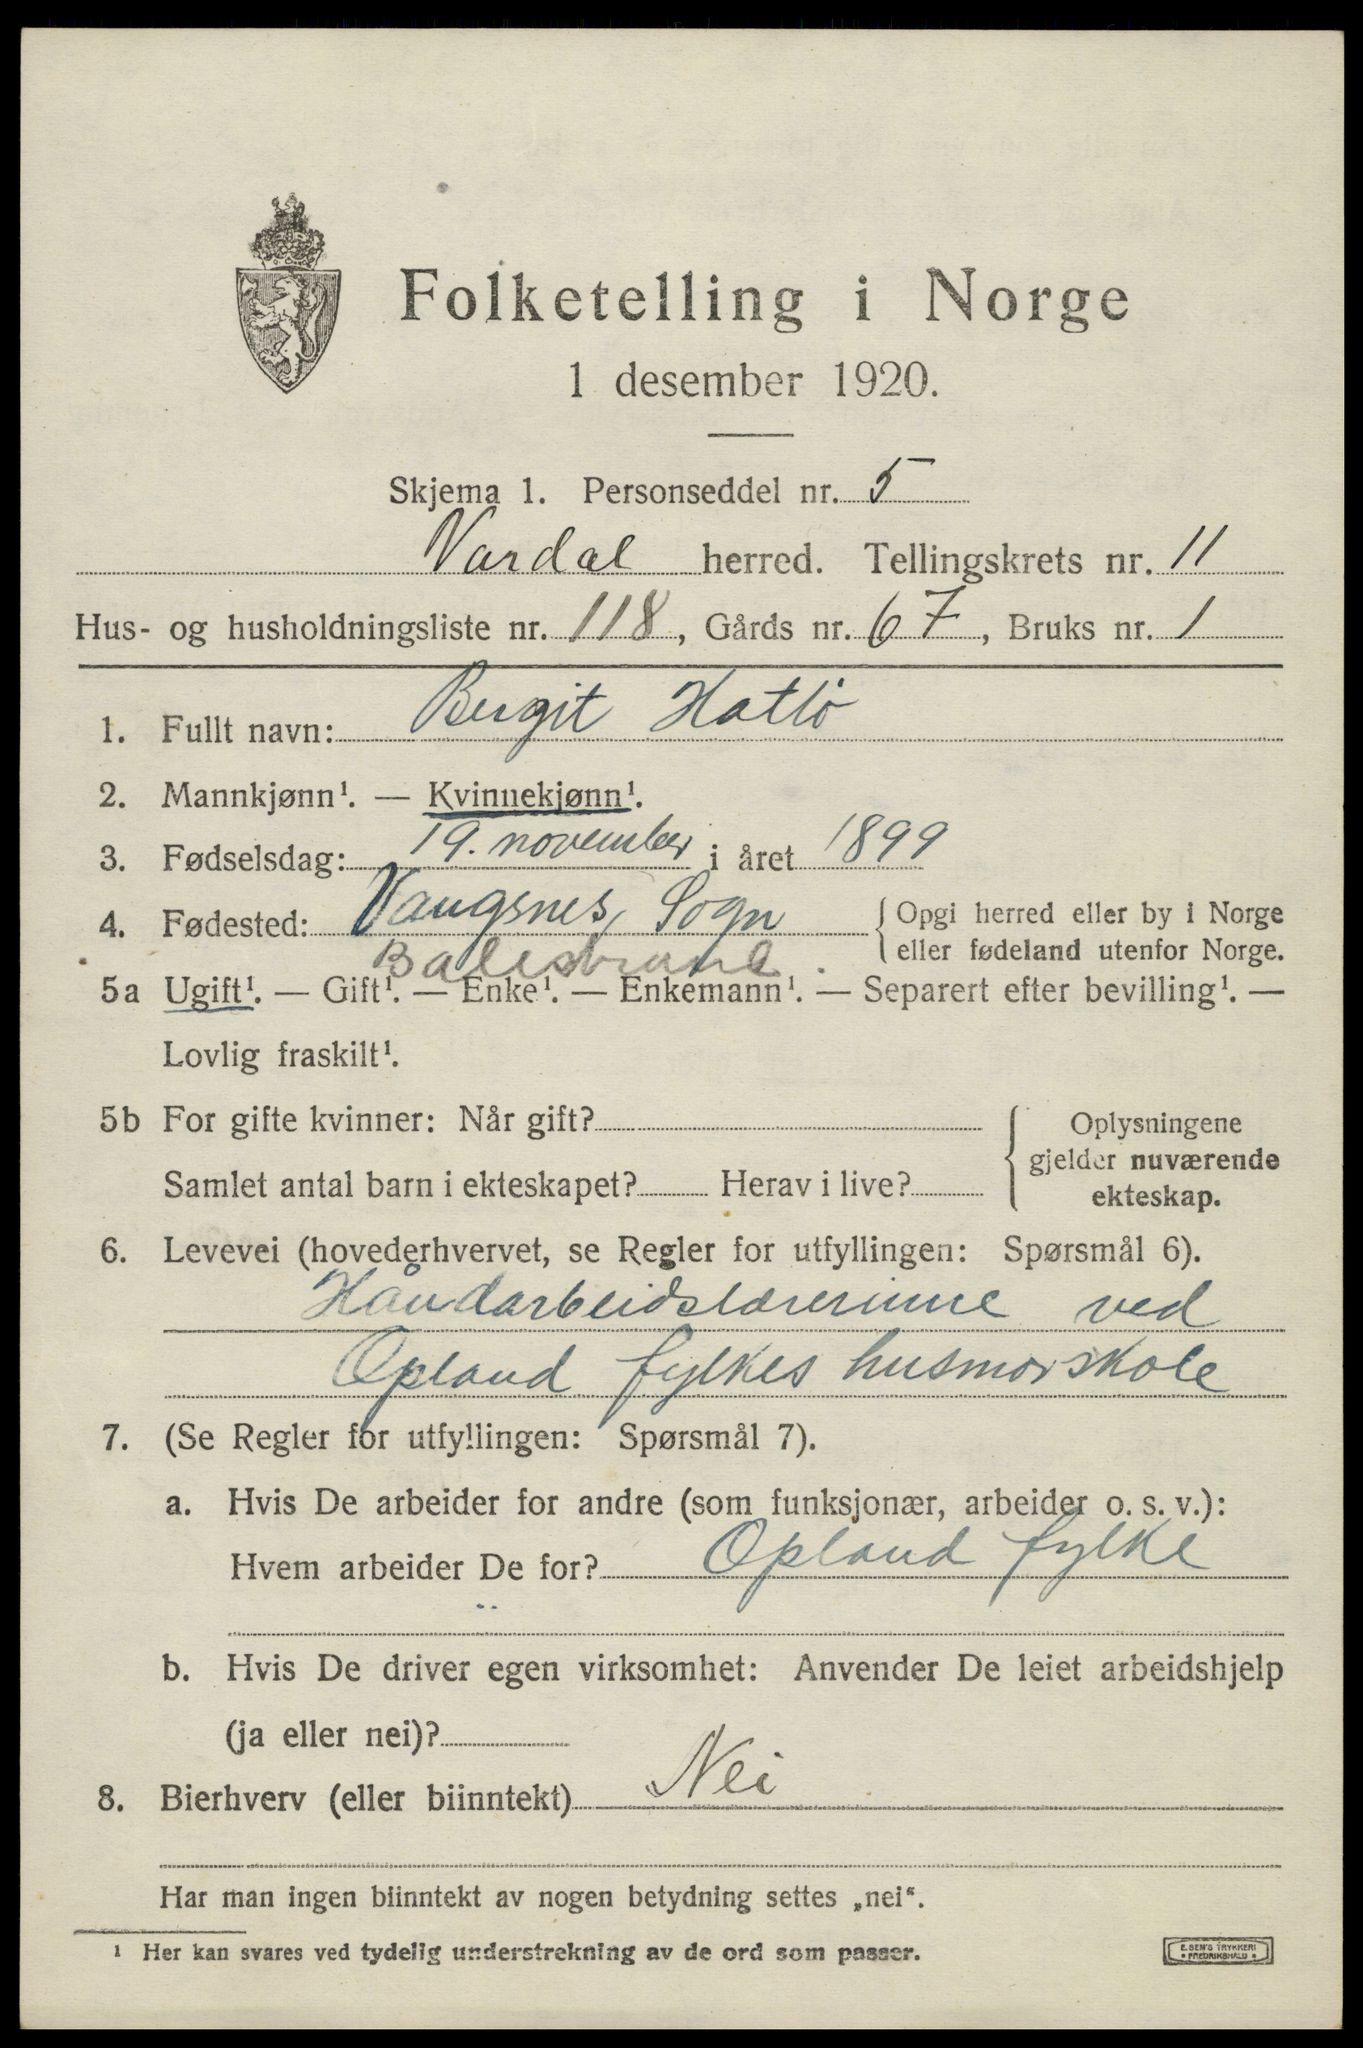 Folketelling i Norge
1 desember 1920.
Skjema 1. Personseddel nr. 5
Vardal herred. Tellingskrets nr. 11
Hus- og husholdningsliste nr. 118, Gårds nr. 67, Bruks nr. 1
1. Fullt navn: Bergit Hatlø
2. Mannkjønn¹. — Kvinnekjønn¹.
3. Fødselsdag: 19. november i året 1899
4. Fødested: Vangsnes, Sogn
Balestrand.
Opgi herred eller by i Norge
eller fødeland utenfor Norge.
5a Ugift¹. — Gift¹. — Enke¹. — Enkemann¹. — Separert efter bevilling¹. —
Lovlig fraskilt¹.
5b For gifte kvinner: Når gift?
Samlet antal barn i ekteskapet? Herav i live?
Oplysningene
gjelder nuværende
ekteskap.
6. Levevei (hovederhvervet, se Regler for utfyllingen: Spørsmål 6).
Håndarbeidslærerinne ved
Opland fylkes husmorskole
7. (Se Regler for utfyllingen: Spørsmål 7).
a. Hvis De arbeider for andre (som funksjonær, arbeider o. s. v.):
Hvem arbeider De for? Opland fylke
b. Hvis De driver egen virksomhet: Anvender De leiet arbeidshjelp
(ja eller nei)?
8. Bierhverv (eller biinntekt) Nei
Har man ingen biinntekt av nogen betydning settes „nei“.
¹ Her kan svares ved tydelig understrekning av de ord som passer.
E. SEM'S TRYKKERI
FREDRIKSHALD